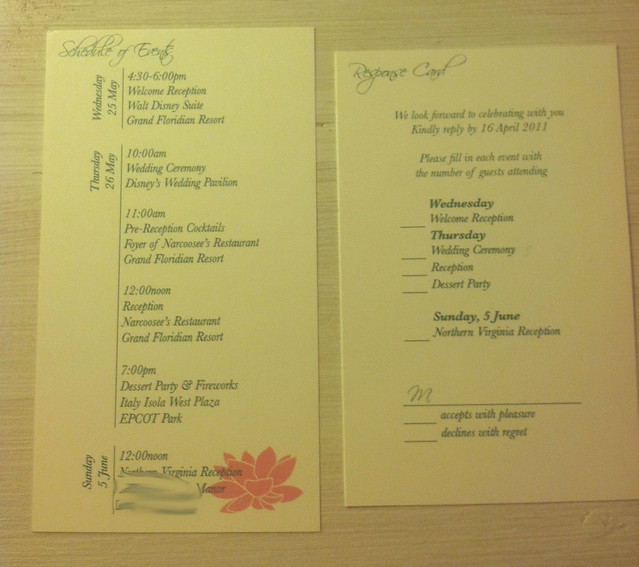 Schedule of Events
Wednesday
25 May
4:30-6:00pm
Welcome Reception
Walt Disney Suite
Grand Floridian Resort
Thursday
26 May
10:00am
Wedding Ceremony
Disney's Wedding Pavilion
11:00am
Pre-Reception Cocktails
Foyer of Narcoosee's Restaurant
Grand Floridian Resort
12:00noon
Reception
Narcoosee's Restaurant
Grand Floridian Resort
7:00pm
Dessert Party & Fireworks
Italy Isola West Plaza
EPCOT Park
Sunday
5 June
12:00noon
Northern Virginia Reception
Manor
Response Card
We look forward to celebrating with you
Kindly reply by 16 April 2011
Please fill in each event with
the number of guests attending
Wednesday
Welcome Reception
Thursday
Wedding Ceremony
Reception
Dessert Party
Sunday, 5 June
Northern Virginia Reception
M
accepts with pleasure
declines with regret